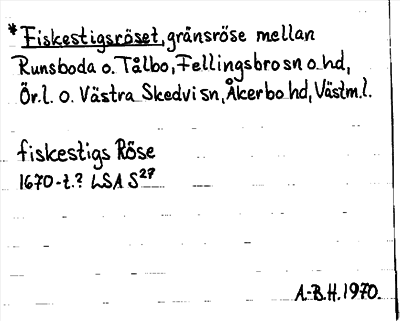 *Fiskestigsröset, gränsröse mellan
Runsboda o. Tålbo, Fellingsbro sn o. hd,
Ör.l. o. Västra Skedvi sn, Åkerbo hd, Västm.l.
fiskestigs Röse
1670-t.? LSA S27
A.-B.H. 1970.